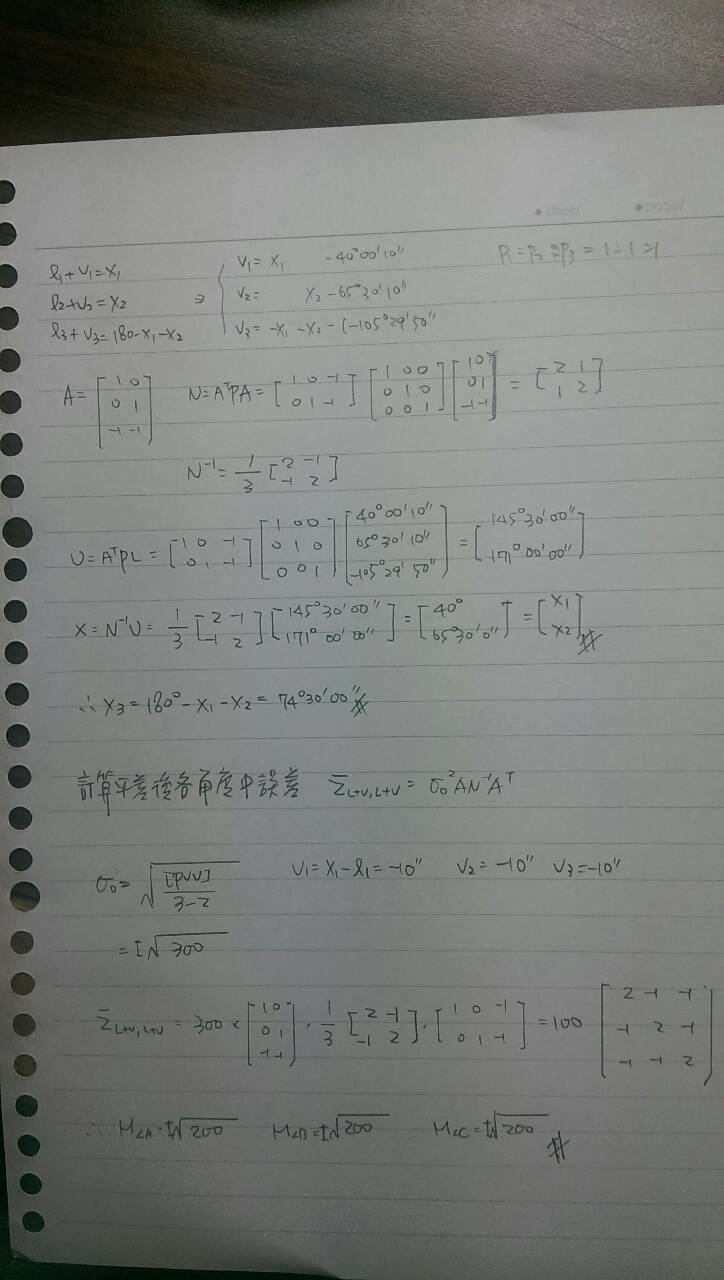 ◆date/ ◆page/
l₁+V₁=X₁ ⇒ { V₁= X₁ -40°00'10" P₁=P₂=P₃=1=1=1
l₂+V₂=X₂ V₂= X₂-65°30'10"
l₃+V₃=180-X₁-X₂ V₃=-X₁-X₂-(-105°29'50")
A=[1 0; 0 1; -1 -1] N=AᵀPA=[1 0 -1; 0 1 -1][1 0 0; 0 1 0; 0 0 1][1 0; 0 1; -1 -1]=[2 1; 1 2]
N⁻¹=1/3[2 -1; -1 2]
U=AᵀPL=[1 0 -1; 0 1 -1][1 0 0; 0 1 0; 0 0 1][40°00'10"; 65°30'10"; -105°29'50"]=[145°30'00"; 171°00'00"]
X=N⁻¹U=1/3[2 -1; -1 2][145°30'00"; 171°00'00"]=[40°; 65°30'0"]=[X₁; X₂]#
∴X₃=180°-X₁-X₂=74°30'00"#
計算平差後各角度中誤差 Σ_L+V,L+V = σ₀²AN⁻¹Aᵀ
σ₀=√([PVV]/(3-2)) V₁=X₁-l₁=-10" V₂=-10" V₃=-10"
=±√300
Σ_L+V,L+V = 300×[1 0; 0 1; -1 -1]·1/3[2 -1; -1 2]·[1 0 -1; 0 1 -1]=100[2 -1 -1; -1 2 -1; -1 -1 2]
∴M∠A=±√200 M∠B=±√200 M∠C=±√200 #